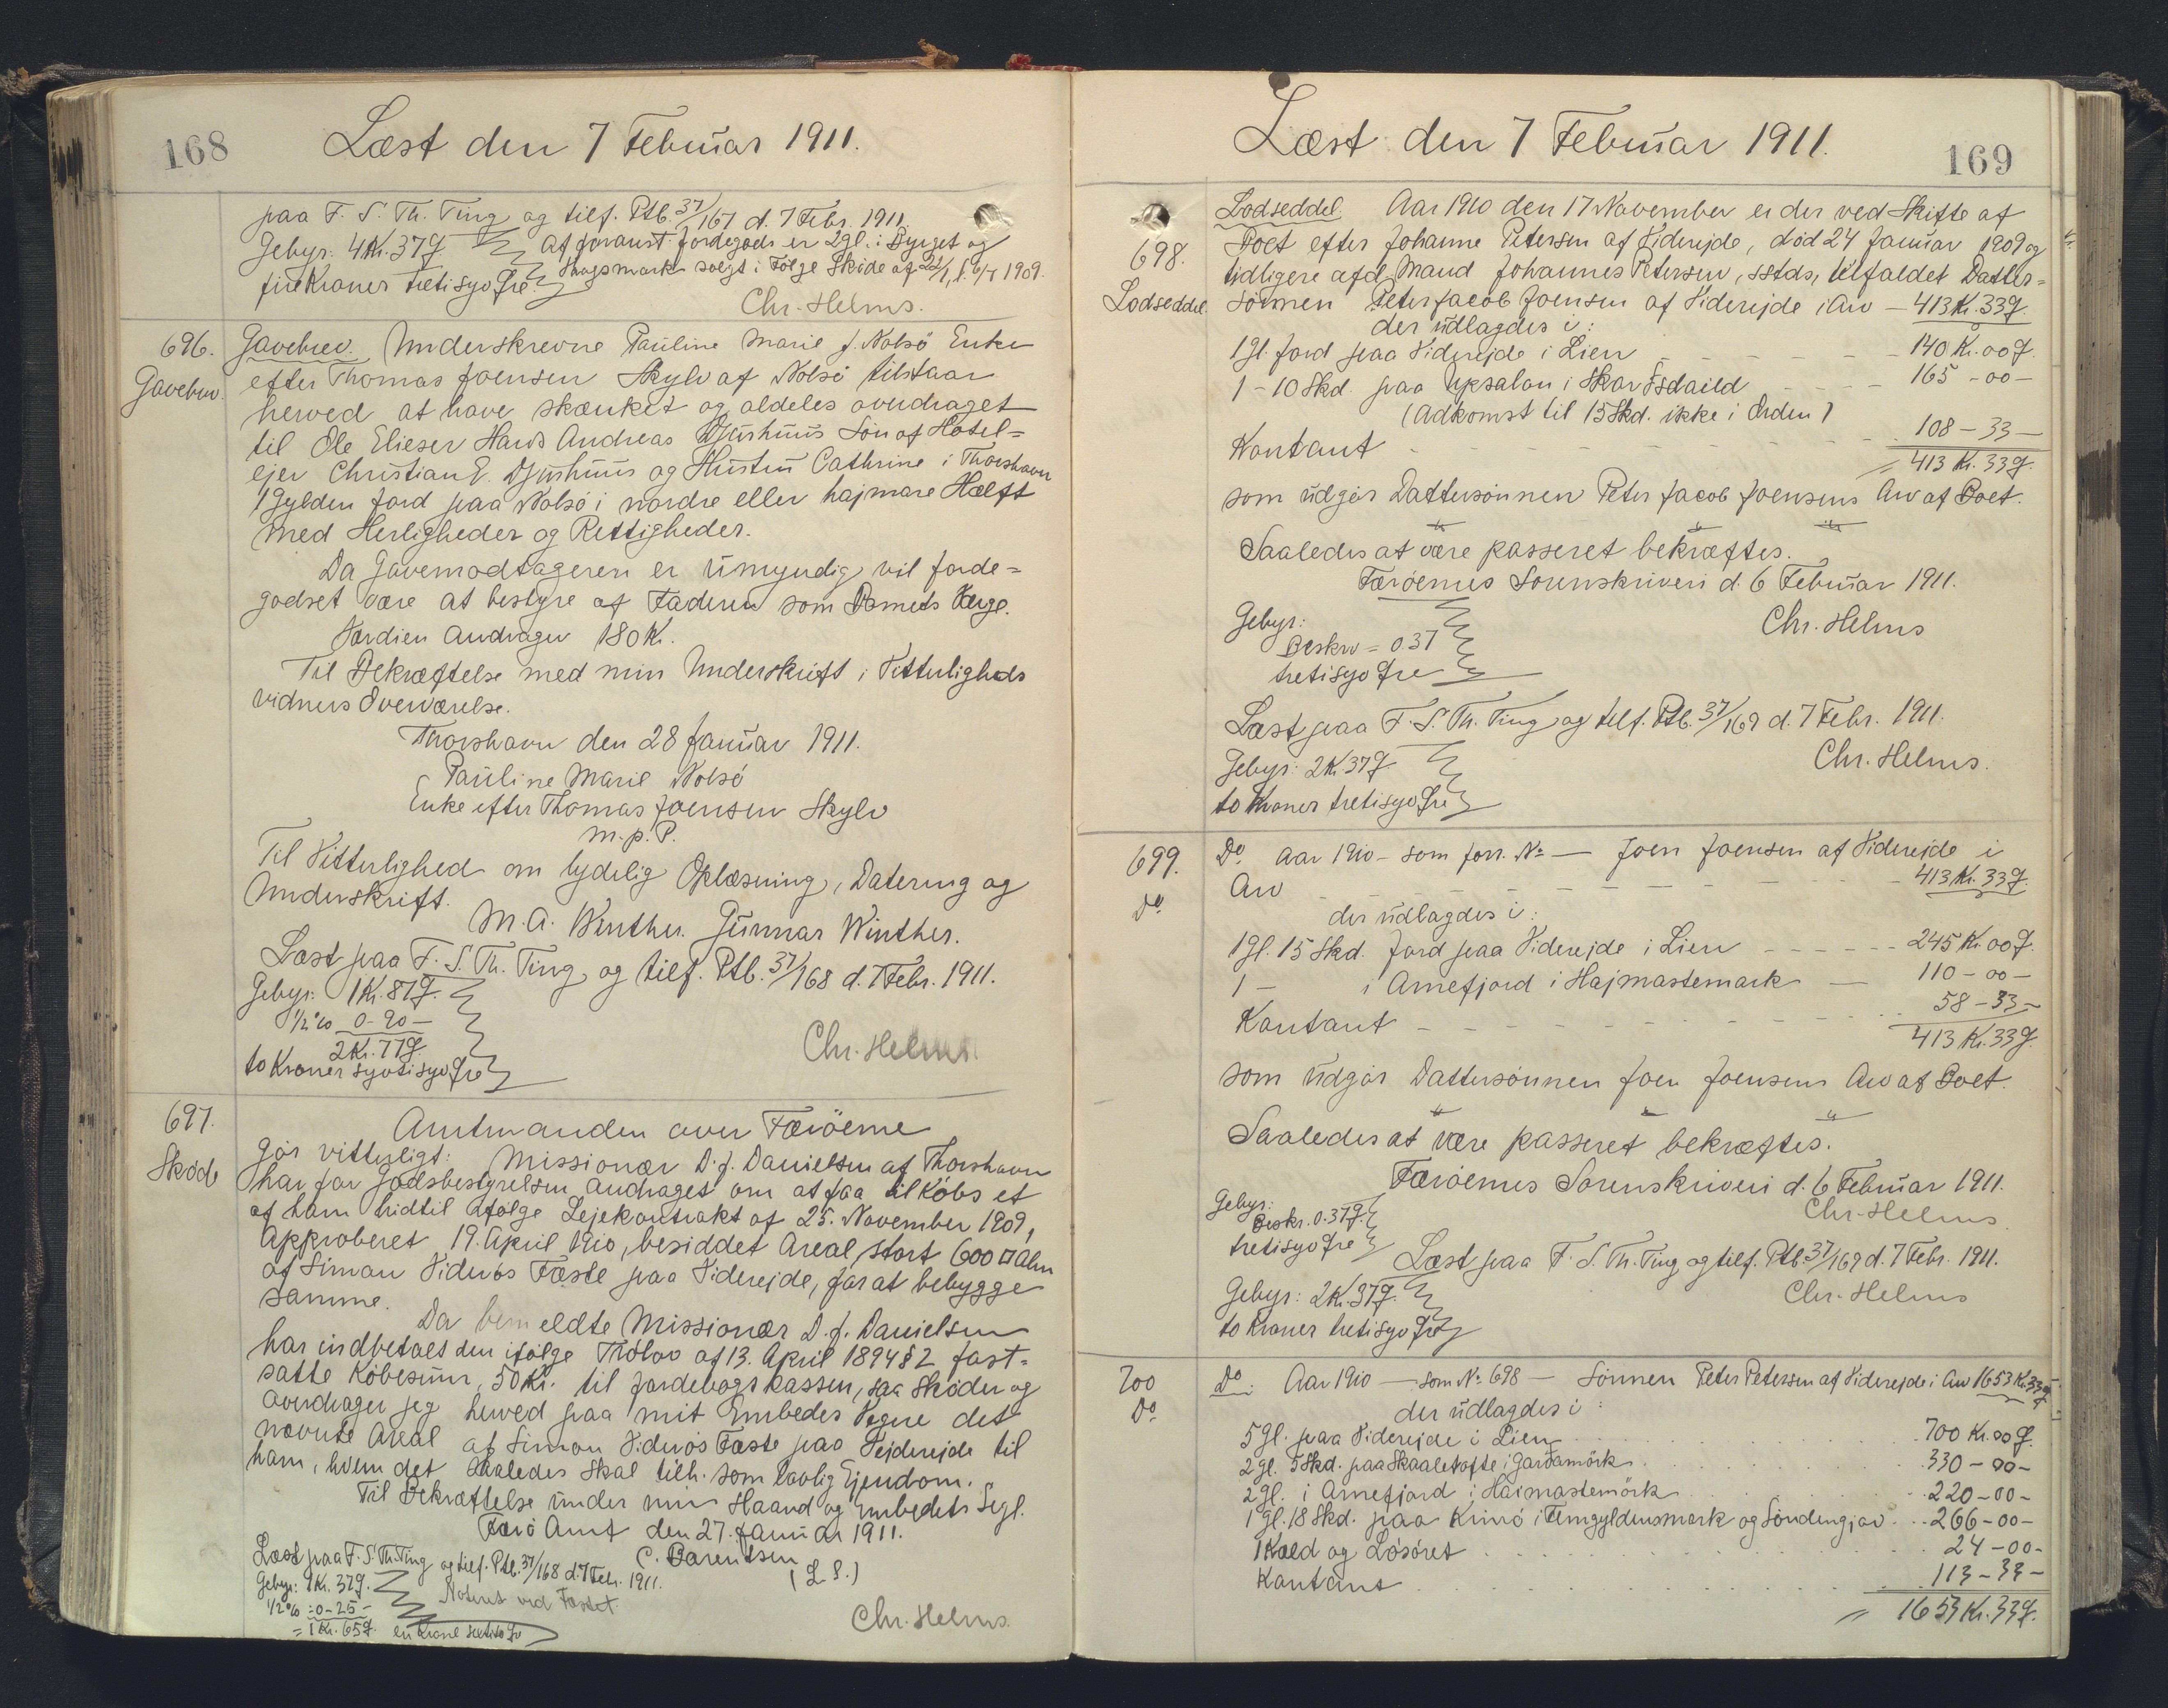 168
Læst den 7 Februar 1911.
paa F. S. Th. Ting og tilf. Ptb. 37/167 d. 7 Febr. 1911.
Gebyr: 4 Kr. 37 Ø. Af foranst. Jordegods er 2 gl. i Byrget og
fire Kroner tretisyv Øre Skogsmark solgt i Følge Skøde af
Chr. Helms.
696. Gavebrev. Underskrevne Pauline Marie f. Nolsö Enke
Gavebrev. efter Thomas Joensen Skylv af Nolsö tilstaar
herved at have skænket og aldeles overdraget
til Ole Elieser Hans Andreas Djurhuus Søn af Hotel=
ejer Christian E. Djurhuus og Hustru Cathrine i Thorshavn
1 Gylden Jord paa Nolsö i nordre eller hajmare Hælft
med Herligheder og Rettigheder.
Da Gavemodtageren er umyndig vil Jorde=
godset være at bestyre af Faderen som Barnets Værge.
Værdien andrager 180 Kr.
Til Bekræftelse med min Underskrift i Vitterligheds
vidners Overværelse.
Thorshavn den 28 Januar 1911.
Pauline Marie Nolsö
Enke efter Thomas Joensen Skylv
m. p. P.
Til Vitterlighed om lydelig Oplæsning, Datering og
Underskrift.
M. A. Winther. Gunnar Winther.
Læst paa F. S. Th. Ting og tilf. Ptb. 37/168 d. 7 Febr. 1911.
Gebyr: 1 Kr. 87 Ø.
1/2 % 0 - 90 -
2 Kr. 77 Ø
to Kroner syvtisyv Øre
Chr. Helms
697. Amtmanden over Færöerne
Skøde Gör vitterligt: Missionær D. J. Danielsen af Thorshavn
har for Godsbestyrelsen andraget om at faa til Købs et
af ham hidtil ifølge Lejekontrakt af 25. November 1909,
approberet 19. April 1910, besiddet Areal, stort 600 □ Alen
af Simon Viderös Fæste paa Viderejde, for at bebygge
samme.
Da bemeldte Missionær D. J. Danielsen
har indbetalt den ifølge Trölov af 13. April 1894 § 2 fast=
satte Købesum, 50 Kr. til Jordebogskassen, saa skøder og
overdrager jeg herved paa mit Embedes Vegne det
nævnte Areal af Simon Viderös Fæste paa Vejderejde til
ham, hvem det saaledes skal tilh. som lovlig Ejendom.
Til Bekræftelse under min Haand og Embedets Segl.
Færö Amt den 27. Januar 1911.
C. Bærentsen
(L. S.)
Læst paa F. S. Th. Ting og tilf. Ptb. 37/168 d. 7 Febr. 1911.
Gebyr: 1 Kr. 37 Ø. Noteret ved Fæstet.
1/2 % : 0 - 25 -
= 1 Kr. 65 Ø
Chr. Helms.
169
Læst den 7 Februar 1911.
698. Lodseddel. Aar 1910 den 17 November er der ved Skifte af
Boet efter Johanne Petersen af Viderejde, död 24 Januar 1909 og
tidligere afd. Mand Johannes Petersen, sstds, tilfaldet Datter=
Lodseddel. sönnen Peter Jacob Joensen af Viderejde i Arv — 413 Kr. 33 Ø.
der udlagdes i:
1 gl. Jord paa Viderejde i Lien 140 Kr. 00 Ø.
1 - 10 Skd. paa Upsalon i 165 - 00 -
(Adkomst til 15 Skd. ikke i Orden)
Kontant 108 - 33 -
= 413 Kr. 33 Ø.
som udgör Dattersönnen Peter Jacob Joensens Arv af Boet.
Saaledes at være passeret bekræftes.
Færöernes Sorenskriveri d. 6 Februar 1911.
Chr. Helms
Gebyr:
Beskrv = 0.37
tretisyv Øre
Læst paa F. S. Th. Ting og tilf. Ptb. 37/169 d. 7 Febr. 1911.
Gebyr: 2 Kr. 37 Ø. Chr. Helms.
to Kroner tretisyv Øre
699. Do. Aar 1910 - som forr. No — Joen Joensen af Viderejde i
Do. Arv 413 Kr. 33 Ø.
der udlagdes i:
1 gl. 15 Skd. Jord paa Viderejde i Lien 245 Kr. 00 Ø.
1 - i Arnefjord i Hajmastemark — 110 - 00 -
Kontant 58 - 33 -
413 Kr. 33 Ø.
som udgör Dattersönnen Joen Joensens Arv af Boet.
Saaledes at være passeret bekræftes.
Færöernes Sorenskriveri d. 6 Februar 1911.
Chr. Helms.
Gebyr:
Beskr. 0.37 Ø.
tretisyv Øre
Læst paa F. S. Th. Ting og tilf. Ptb. 37/169 d. 7 Febr. 1911.
Gebyr: 2 Kr. 37 Ø. Chr. Helms
to Kroner tretisyv Øre
700 Do. Aar 1910 — som No 698 — Sönnen Peter Petersen af Viderejde i Arv 1653 Kr. 33 Ø.
Do. der udlagdes i:
5 gl. paa Viderejde i Lien 700 Kr. 00 Ø.
2 gl. 5 Skd. paa Skaaletofte i Gardamörk 330 - 00 -
2 gl. i Arnefjord i Haimastemörk 220 - 00 -
1 gl. 18 Skd. paa Kunö i Femgyldensmork og Söndengjov 266 - 00 -
1 Kæld og Lösöret 24 - 00 -
Kontant 113 - 33 -
= 1653 Kr. 33 Ø.